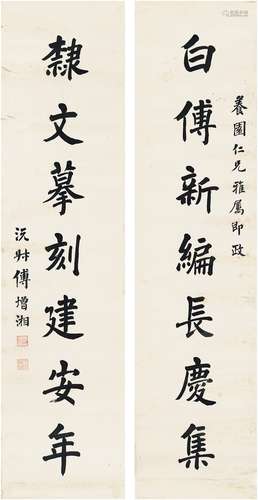 養園仁兄雅屬即政
白傅新編長慶集
隸文摹刻建安年
沅叔傅增湘